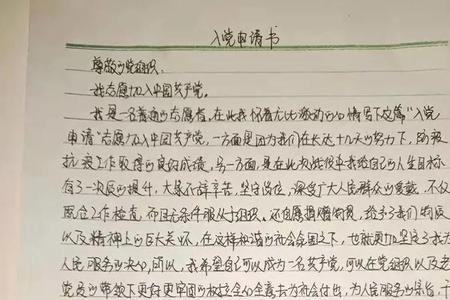 入党申请书
尊敬的党组织:
我志愿加入中国共产党。
我是一名普通的志愿者,在此我怀着无比激动的心情写下这篇“入党
申请”志愿加入中国共产党,一方面是因为我们在长达十几天的努力下,防疫
抗疫工作取得的良好成绩,另一方面,是在此次战役中我给自己的人生目标
有了一次质的提升,大家不辞辛苦,坚守岗位,深受广大人民群众的爱戴,不仅
配合工作检查,而且无条件服从于组织。还自愿捐赠物资,给予了我们物质
以及精神上的巨大关怀,在这样和谐的社会氛围之下,也就更加坚定了我为
人民服务的决心,所以,我希望自己可以成为一名共产党,可以在党组织以及老
党员的带领下更好更牢固的 全心全意去为社会付出,为人民服务的